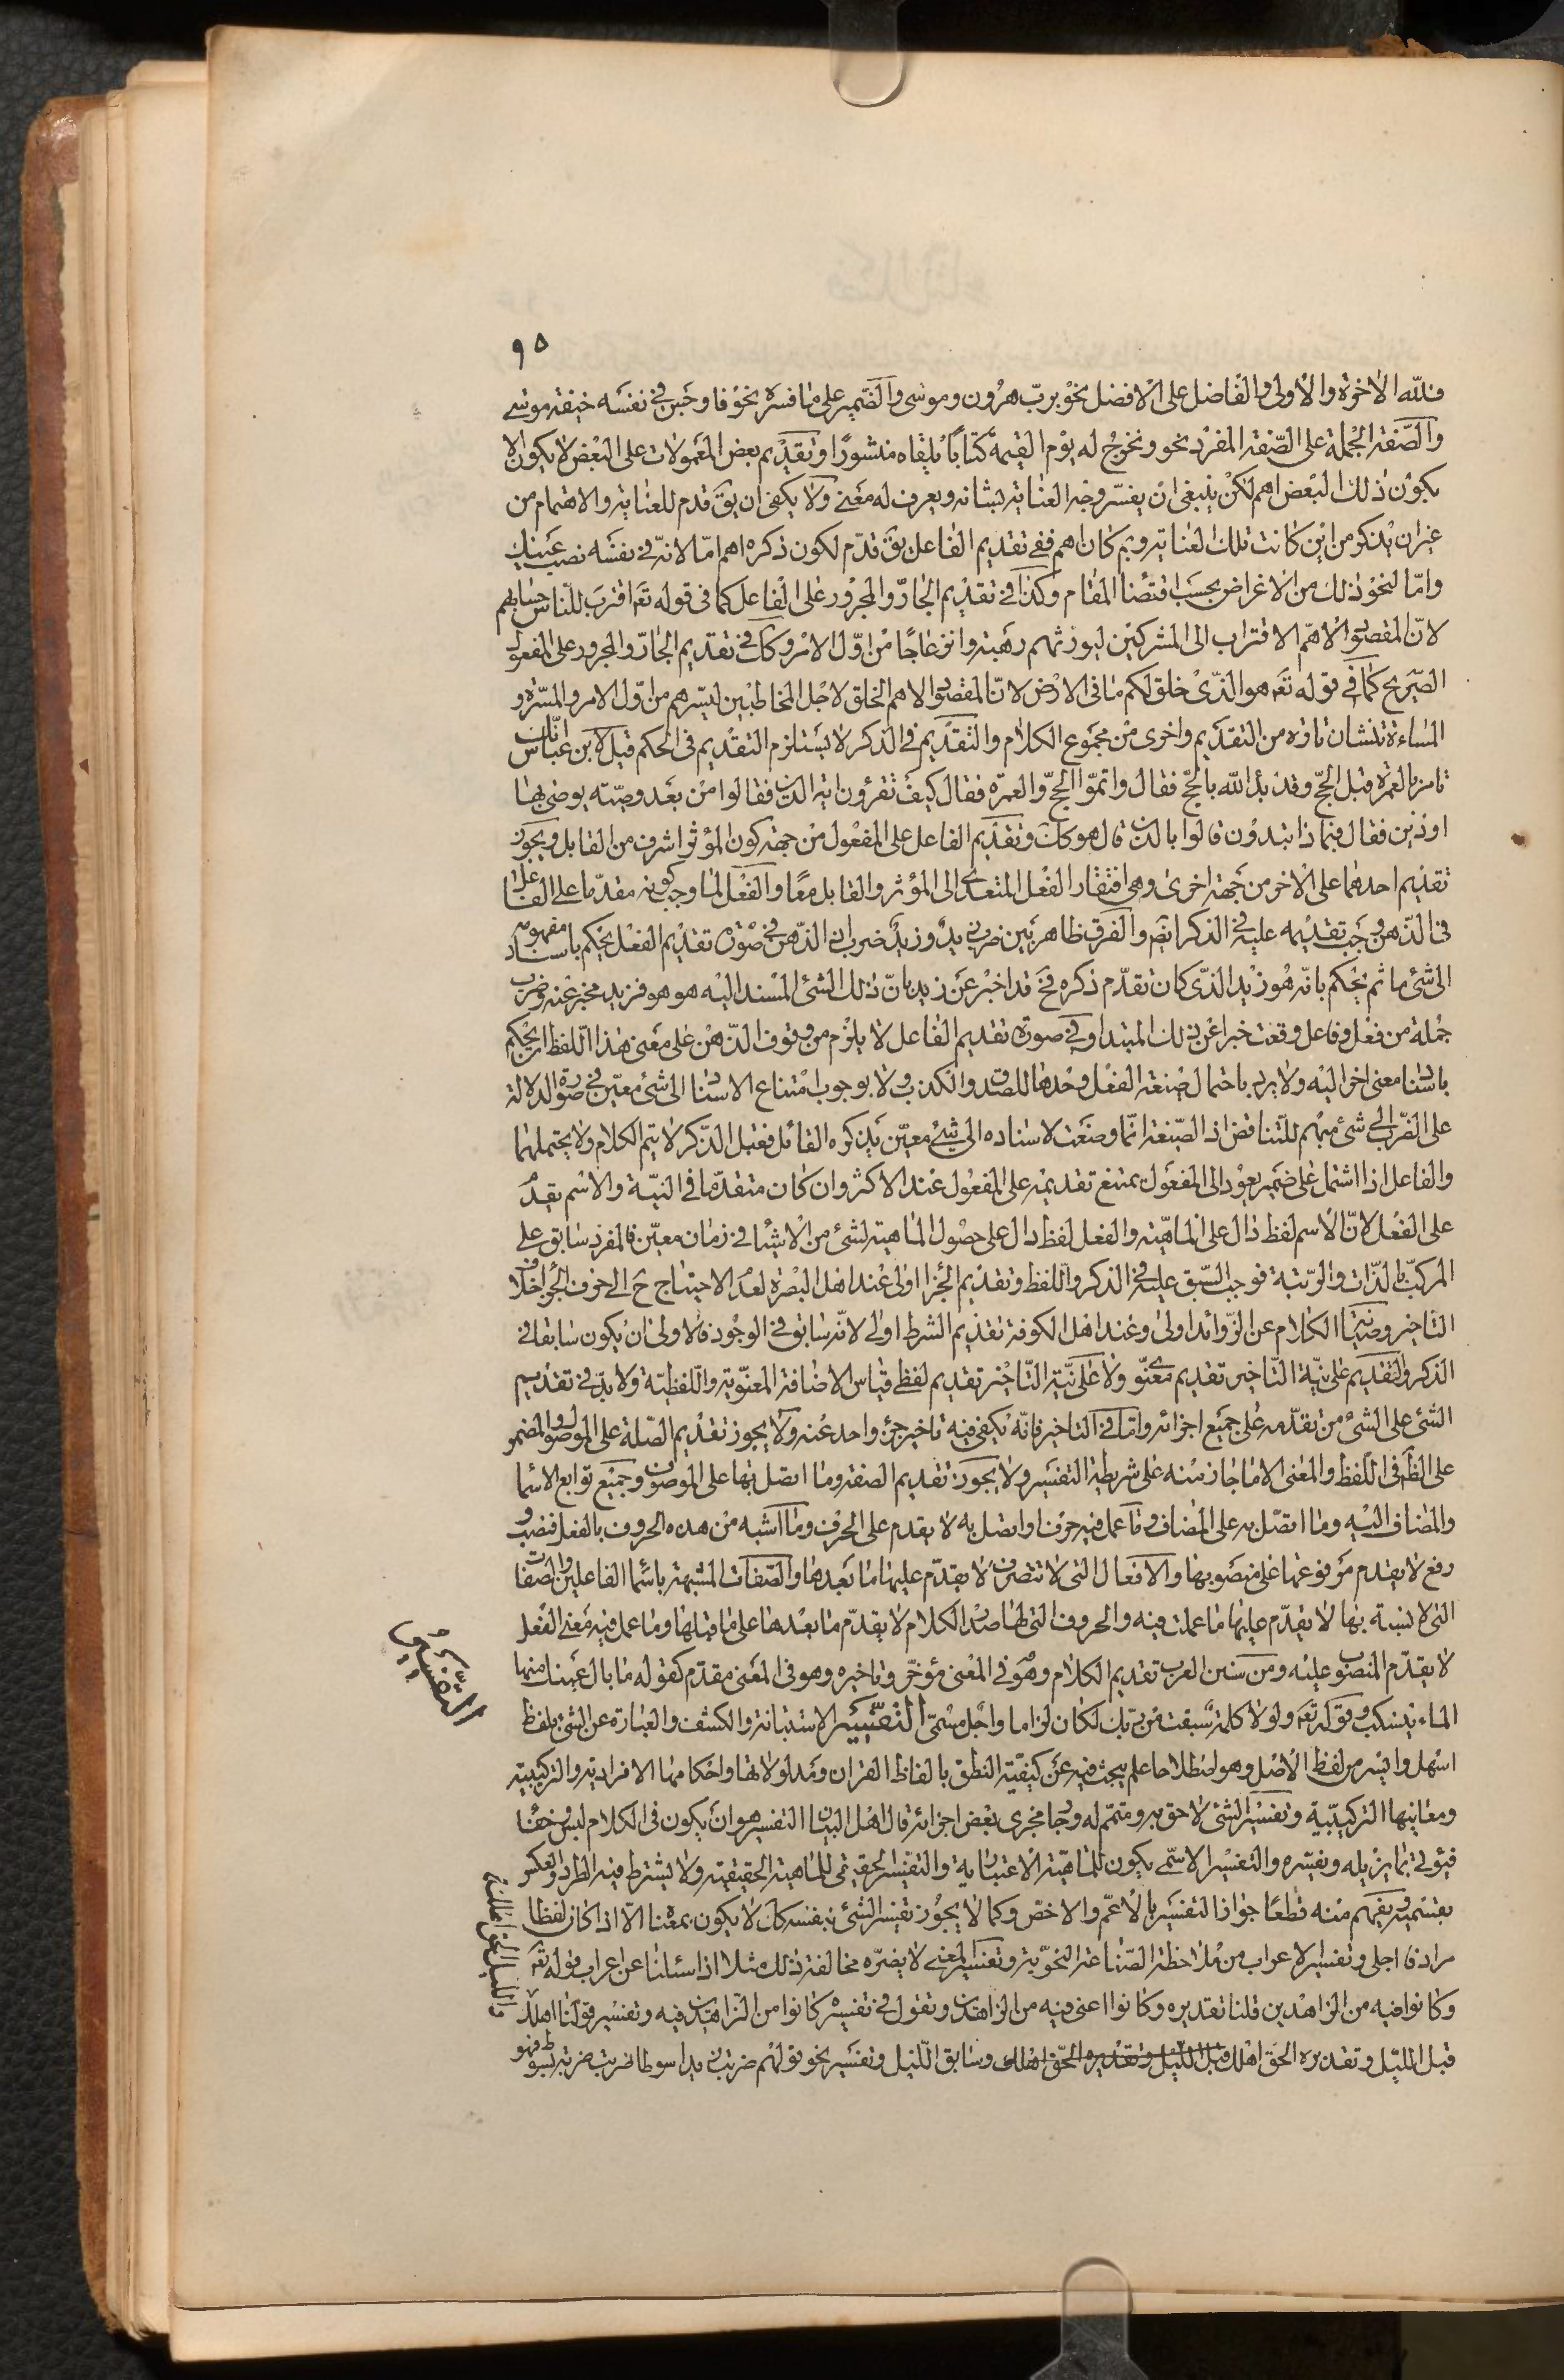 ٩٥
فلله الاخرة والاولى والفاضل على الافضل نحو برب هرون وموسى والضمير على ما فسره نحو فاوجس في نفسه خيفة موسى
والصفة الجملة على الصفة المفرد نحو ونخرج له يوم القيمة كتابا يلقاه منشورا وتقديم بعض المعمولات على البعض لا يكون الا
بكون ذلك البعض اهم لكن ينبغي ان يفسر وجه العناية بشانه ويعرف له معنى ولا يكفي ان يق قدم للعناية والاهتمام من
غير ان يذكر من اين كانت تلك العناية وبم كان اهم ففي تقديم الفاعل يق قدم لكون ذكره اهم اما لانه في نفسه نصب عينك
واما لنحو ذلك من الاغراض بحسب اقتضا المقام وكذا في تقديم الجار والمجرور على الفاعل كما في قوله تعه اقترب للناس حسابهم
لان المقصود الاهم الاقتراب الى المشركين ليورثهم رهبة وانزعاجا من اول الامر وكك في تقديم الجار والمجرور على المفعول
الصريح كما في قوله تعه هو الذي خلق لكم ما في الارض لان المقصود الاهم الخلق لاجل المخاطبين ليسرهم من اول الامر والمسرة و
المساءة تنشان تارة من التقديم واخرى من مجموع الكلام والتقديم في الذكر لا يستلزم التقديم في الحكم قيل لابن عباس انك
تامر بالعمرة قبل الحج وقد بدأ الله بالحج فقال واتموا الحج والعمرة فقال كيف تقرؤن اية الدين فقالوا من بعد وصية يوصى بها
او دين فقال فبماذا تبدؤن قالوا بالدين قال هو كك وتقديم الفاعل على المفعول من جهة كون المؤثر اشرف من القابل ويجوز
تقديم احدهما على الاخر من جهة اخرى وهي افتقار الفعل المتعدي الى المؤثر والقابل معا والفعل لما وجب كونه مقدما على الفاعل
في الذهن وجب تقديمه عليه في الذكر ايضا والفرق ظاهر بين ضرب زيد وزيد ضرب ان الذهن في صورة تقديم الفعل يحكم باسناد مفهومه
الى شئ ما ثم يحكم بانه هو زيد الذي كان تقدم ذكره فح قد اخبر عن زيد بان ذلك الشئ المسند اليه هو هو فزيد مخبر عنه وضرب
جملة من فعل وفاعل وقعت خبرا عن ذلك المبتدا وفي صورة تقديم الفاعل لا يلزم من وقوف الذهن على معنى هذا اللفظ ان يحكم
باسناد معنى اخر اليه ولا يرد باحتمال صيغة الفعل وحدها للصدق والكذب ولا بوجوب امتناع الاسناد الى شئ معين في صورة الدلالة
على الضرب الى شئ مبهم للتناقض اذ الصيغة انما وضعت لاسناده الى شئ معين يذكره القائل فقبل الذكر لا يتم الكلام ولا يحتملهما
والفاعل اذا اشتمل على ضمير يعود الى المفعول يمتنع تقديمه على المفعول عند الاكثر وان كان متقدما في النية والاسم يقدم
على الفعل لان الاسم لفظ دال على الماهية والفعل لفظ دال على حصول الماهية لشئ من الاشياء في زمان معين فالمفرد سابق على
المركب بالذات والرتبة فوجب السبق عليه في الذكر واللفظ وتقديم الجزا اولى عند اهل البصرة لعدم الاحتياج ح الى حرف الجزا بخلاف
التاخير وصيانة الكلام عن الزوائد اولى وعند اهل الكوفة تقديم الشرط اولى لانه سابق في الوجود فالاولى ان يكون سابقا في
الذكر والتقديم على نية التاخير تقديم معنوي ولا على نية التاخير تقديم لفظي قياس الاضافة المعنوية واللفظية ولا بد في تقديم
الشئ على الشئ من تقدمه على جميع اجزائه واما في التاخير فانه يكفي فيه تاخير جزء واحد عنه ولا يجوز تقديم الصلة على الموصول والمضمر
على الظه في اللفظ والمعنى الا ما جاز منه على شريطة التفسير ولا يجوز تقديم الصفة وما اتصل بها على الموصوف وجميع توابع الاسما
والمضاف اليه وما اتصل به على المضاف وما عمل فيه حرف او اتصل به لا يقدم على الحرف وما اشبه من هذه الحروف بالفعل فنصب و
رفع لا يقدم مرفوعها على منصوبها والافعال التي لا تتصرف لا يقدم عليها ما بعدها والصفات المشبهة باسما الفاعلين والصفات
التي لا تشبه بها لا يقدم عليها ما عملت فيه والحروف التي لها صدر الكلام لا يقدم ما بعدها على ما قبلها وما عمل فيه معنى الفعل
لا يقدم المنصوب عليه ومن سنن العرب تقديم الكلام وهو في المعنى مؤخر وتاخيره وهو في المعنى مقدم كقوله ما بال عينك منها
الماء ينسكب وقوله تعه ولولا كلمة سبقت من ربك لكان لزاما واجل مسمى التفسير الاستبانة والكشف والعبارة عن الشئ بلفظ
اسهل وايسر من لفظ الاصل وهو اصطلاحا علم يبحث فيه عن كيفية النطق بالفاظ القران ومدلولاتها واحكامها الافرادية والتركيبية
ومعانيها التركيبية وتفسير الشئ لاحق به ومتمم له وجار مجرى بعض اجزائه قال اهل البيان التفسير هو ان يكون في الكلام لبس وخفا
فيؤتى بما يزيله ويفسره والتفسير الاسمي يكون للماهية الاعتبارية والتفسير الحقيقي للماهية الحقيقية ولا يشترط فيه الطرد والعكس
بقسميه ويفهم منه قطعا جواز التفسير بالاعم والاخص وكما لا يجوز تفسير الشئ بنفسه كك لا يكون بمعناه الا اذا كان لفظا
مرادفا اجلى وتفسير الاعراب من ملاحظة الصناعة النحوية وتفسير المعنى لا يضره مخالفة ذلك مثلا اذا سئلنا عن اعراب قوله تعه
وكانوا فيه من الزاهدين قلنا تقديره وكانوا اعني فيه من الزاهدين ونقول في تفسيره كانوا من الزاهدين فيه وتفسير قولنا اهلك
قبل الليل وتقديره الحق اهلك قبل الليل وتقديره الحق اهلك وسابق الليل وتفسير نحو قولهم ضربت زيدا سوطا ضربت ضربة بسوط فهو
التفسير